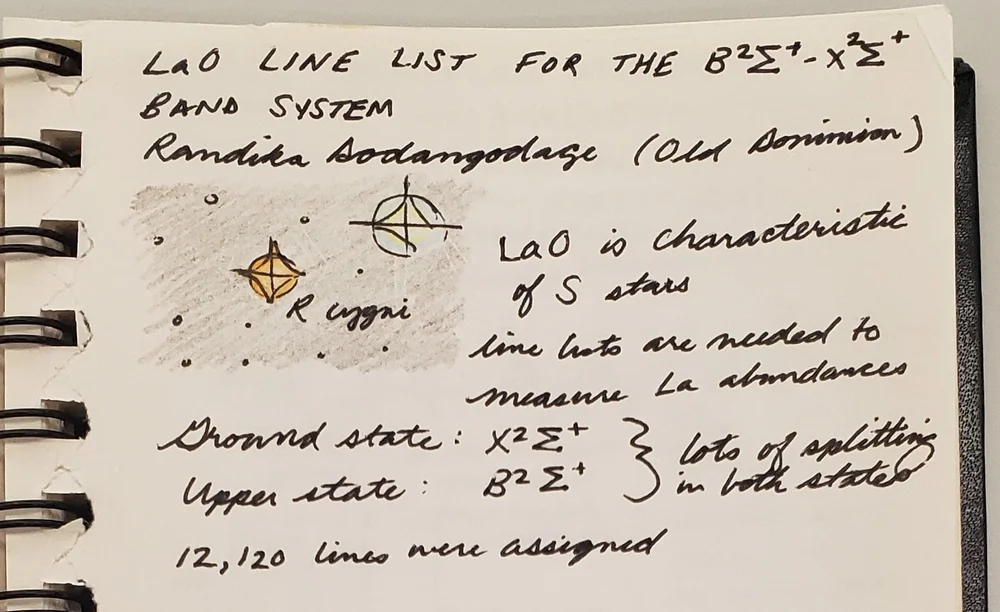 LaO LINE LIST FOR THE B²Σ⁺-X²Σ⁺
BAND SYSTEM
Randika Dodangodage (Old Dominion)
R cygni
LaO is characteristic
of S stars
line lists are needed to
measure La abundances
Ground state: X²Σ⁺
Upper state: B²Σ⁺
lots of splitting
in both states
12,120 lines were assigned